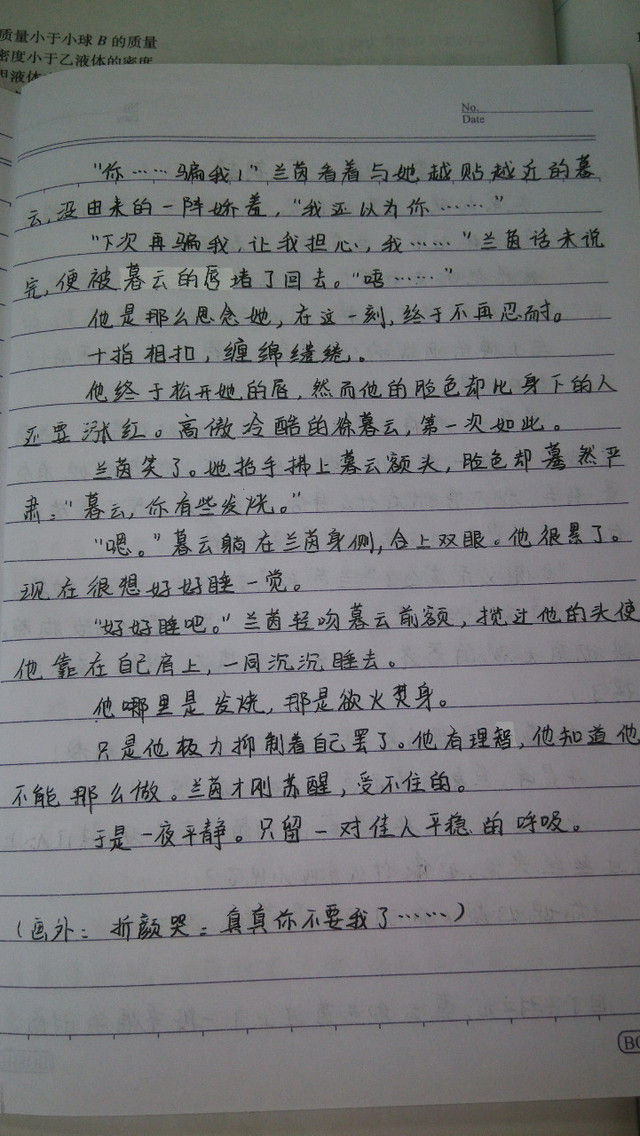 质量小于小球B的质量
密度小于乙液体的密度
No.
Date
“你……骗我！”兰茵看着与她越贴越近的暮
云,没由来的一阵娇羞，“我还以为你……”
“下次再骗我,让我担心，我……”兰茵话未说
完,便被暮云的唇堵了回去。“唔……”
他是那么思念她，在这一刻,终于不再忍耐。
十指相扣，缠绵缱绻。
他终于松开她的唇，然而他的脸色却比身下的人
还要涨红。高傲冷酷的徐暮云，第一次如此。
兰茵笑了。她抬手拂上暮云额头，脸色却蓦然严
肃：“暮云，你有些发烧。”
“嗯。”暮云躺在兰茵身侧,合上双眼。他很累了。
现在很想好好睡一觉。
“好好睡吧。”兰茵轻吻暮云前额，揽过他的头使
他靠在自己肩上，一同沉沉睡去。
他哪里是发烧，那是欲火焚身。
只是他极力抑制着自己罢了。他有理智，他知道他
不能那么做。兰茵才刚苏醒，受不住的。
于是一夜平静。只留一对佳人平稳的呼吸。
（画外：折颜哭：真真你不要我了……）